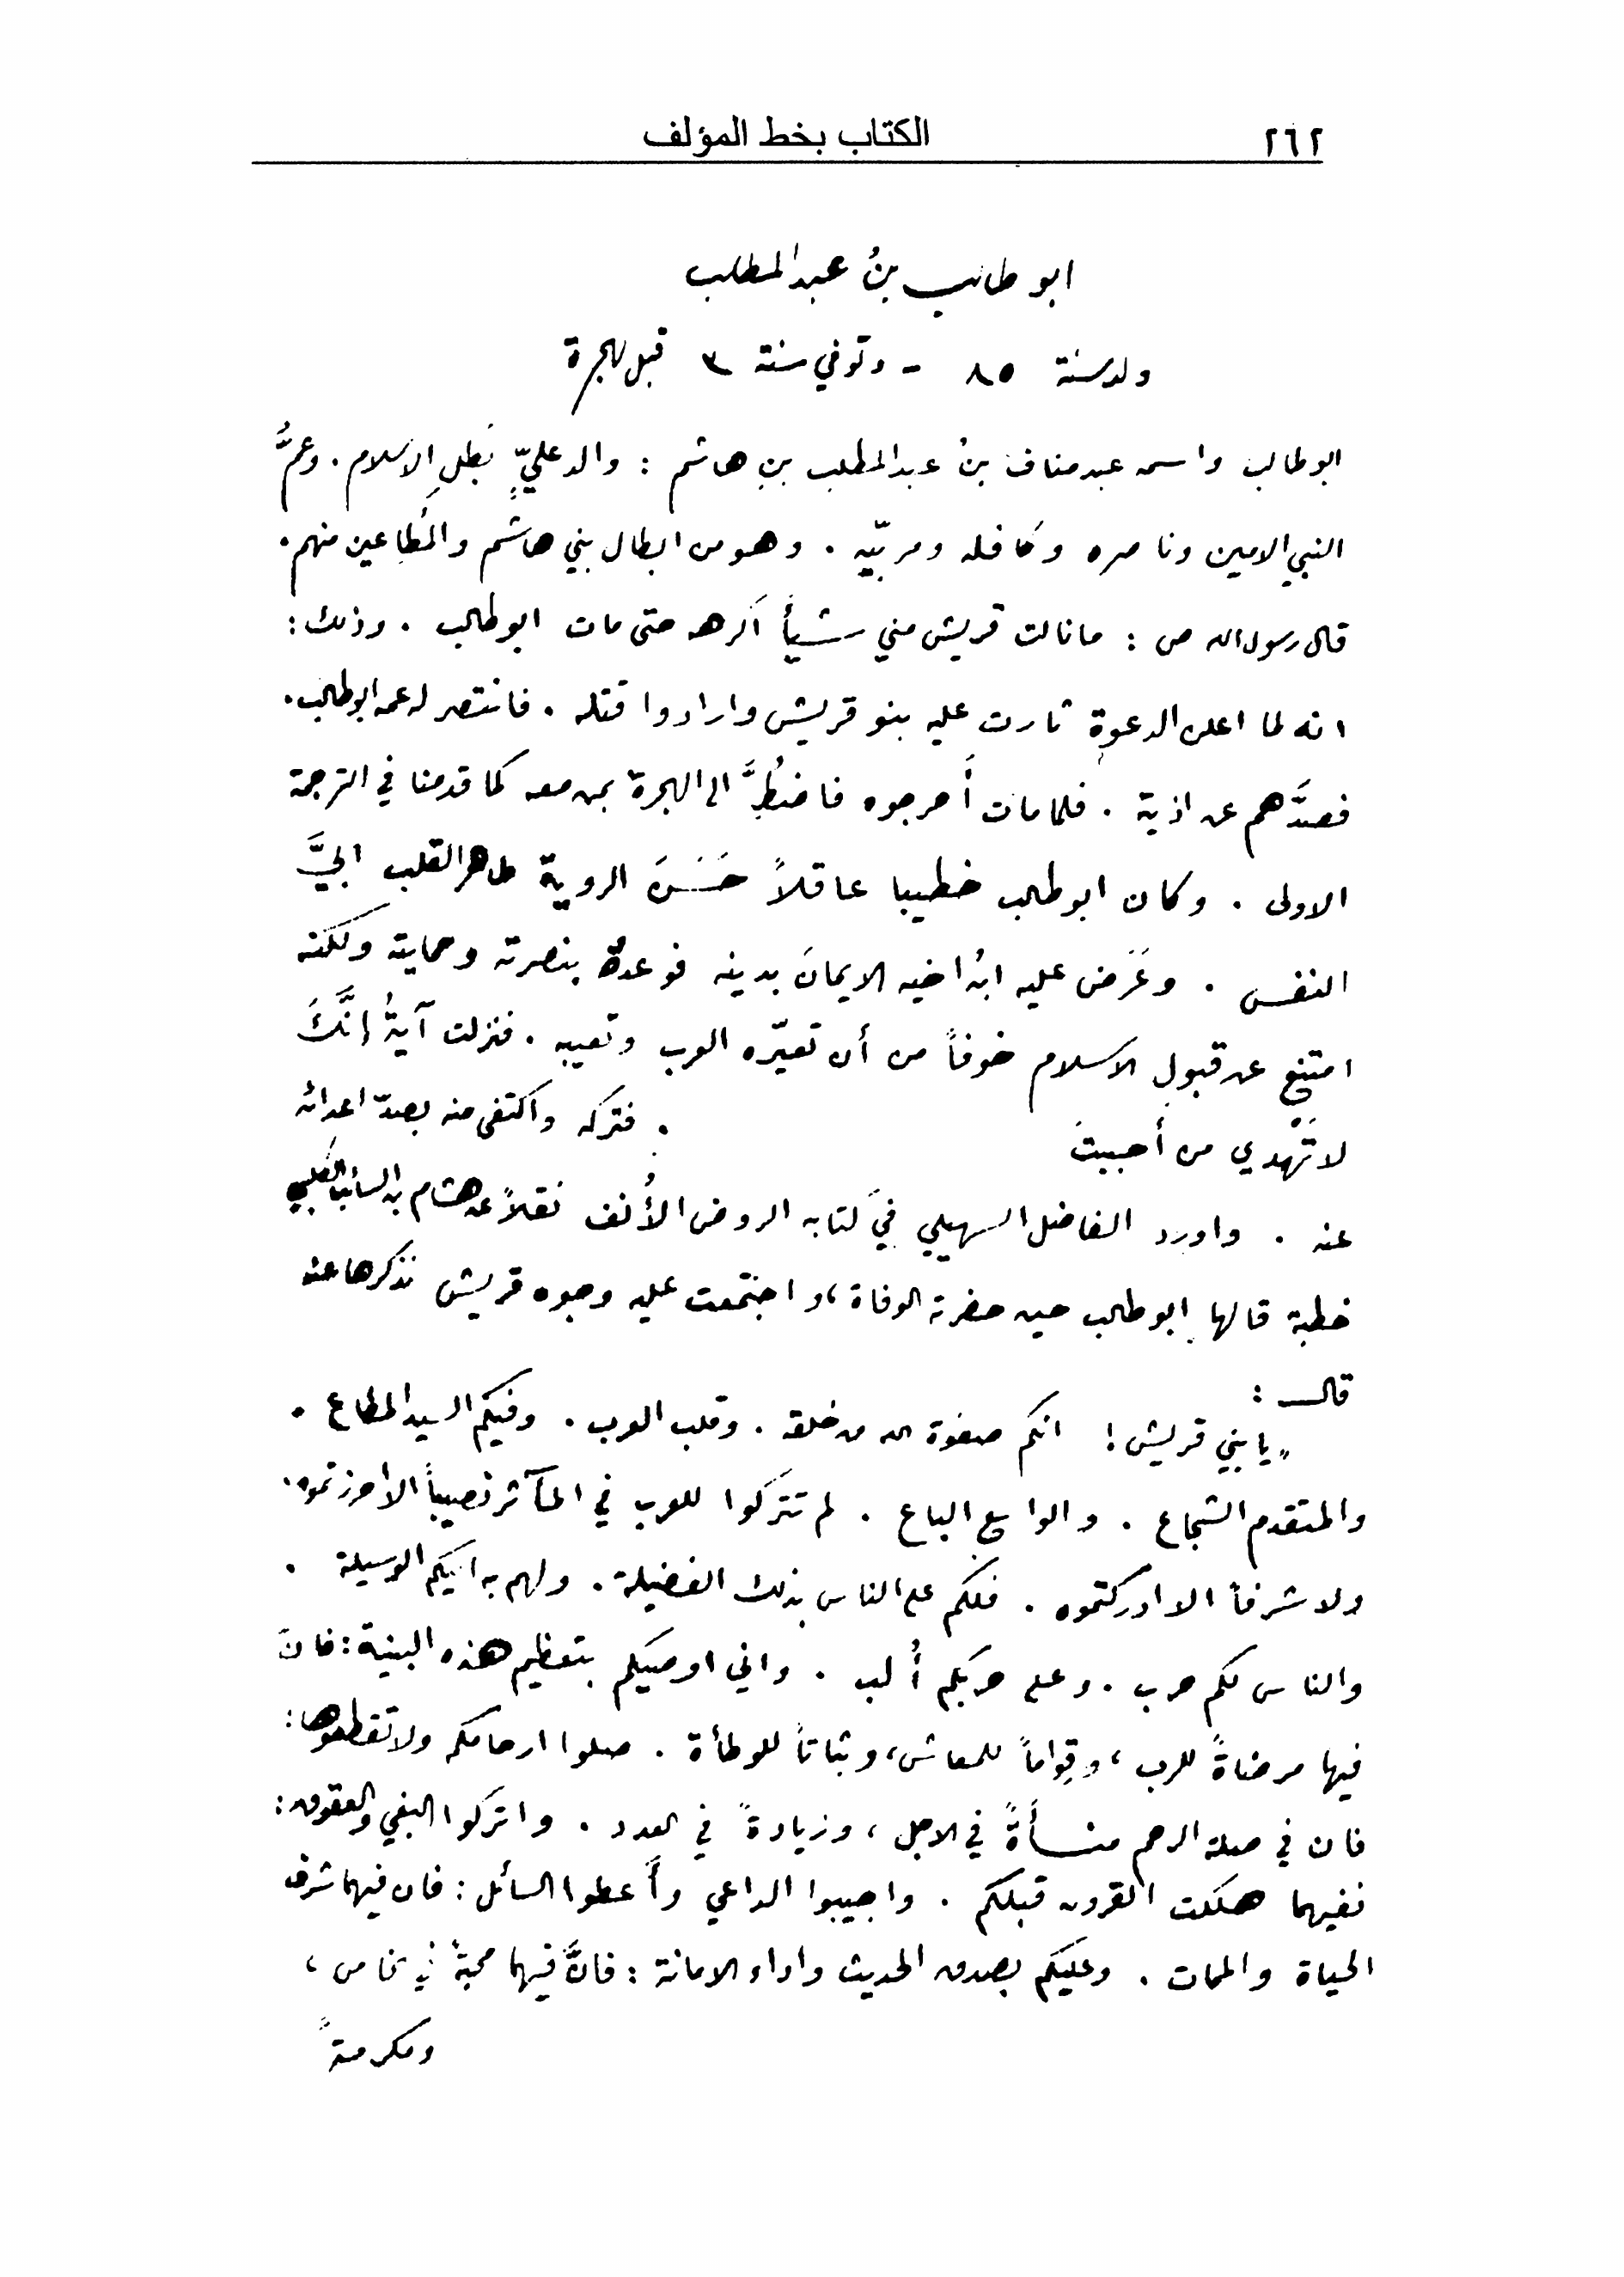 ٢٦٢
الكتاب بخط المؤلف
ابو طالب بنُ عبد المطلب
ولد سنة ٨٥ - وتوفي سنة ٣ قبل الهجرة
ابو طالب واسمه عبد مناف بنُ عبد المطلب بنِ هاشم : والد عليٍّ بَطلِ الاسلام . وعمُّ
النبي الامين وناصره وكافله ومربّيه . وهو من ابطال بني هاشم والمُطاعين منهم .
قال رسول الله ص : ما نالت قريش مني شيأً اكرهه حتى مات ابو طالب . وذلك :
انه لما اعلن الدعوة ثارت عليه بنو قريش وارادوا قتله . فانتصر له عمه ابو طالب .
فصدَّهم عن اذية . فلما مات أَحرجوه فاضطُرَّ الى الهجرة بمن معه كما قدمنا في الترجمة
الاولى . وكان ابو طالب خطيبا عاقلاً حَسَنَ الروية طاهر القلب ابيَّ
النفس . وعَرَض عليه ابنُ اخيه الايمانَ بدينه فوعده بنصرته وحمايته ولكنه
امتنع عن قبول الاسلام خوفاً من أن تعيّره العرب وتعيبه . فنزلت آيةُ إنَّكَ
لا تَهدي من أَحببتَ . فتركه واكتفى منه بصدّ اعدائه
عنه . واورد الفاضل السهيلي في كتابه الروض الأُنف نقلاً عن هشام بن السائب الكلبي
خطبة قالها ابو طالب حين حضرته الوفاة ، واجتمعت عليه وجوه قريش نذكرها عنه
قال :
„ يا بني قريش ! انكم صفوة الله من خلقه . وقلب العرب . وفيكم السيد المطاع .
والمتقدم الشجاع . والواسع الباع . لم تتَركوا للعرب في المآثر نصيباً الا احرزتموه .
ولا شرفاً الا ادركتموه . فلكم على الناس بذلك الفضيلة . ولهم به اليكم الوسيلة .
والناس لكم حرب . وعلى حربكم أُلب . واني اوصيكم بتعظيم هذه البنية : فانَ
فيها مرضاةً للرب ، وقِواماً للمعاش ، وثباتاً للوطأة . صلوا ارحامكم ولا تقطعوها :
فان في صلة الرحم منسأَةً في الاجل ، وزيادةً في العدد . واتركوا البغي والعقوق :
ففيهما هلكت القرون قبلكم . واجيبوا الداعي وأَعطوا السائل : فان فيهما شرف
الحياة والممات . وعليكم بصدق الحديث واداء الامانة : فانَّ فيهما محبةً في الخاص ،
ومكرمةً